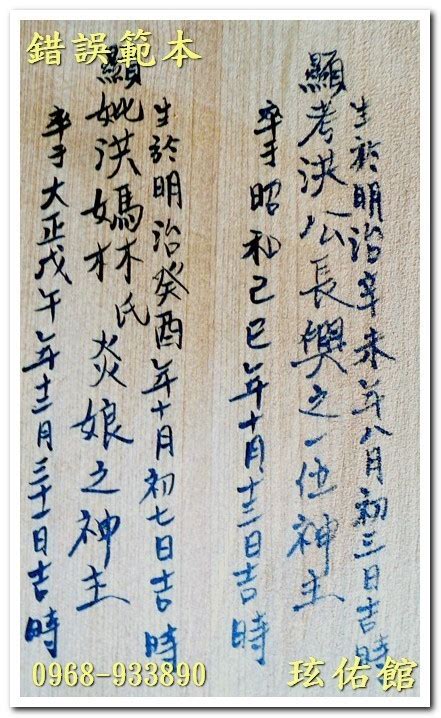 錯誤範本
生於明治辛未年八月初三日吉時
顯考洪公長與之一位神主
卒于昭和己巳年十月十二日吉時
生於明治癸酉年十月初七日吉時
顯妣洪媽林氏炎娘之神主
卒于大正戊午年十二月三十一日吉時
0968-933890
玹佑館